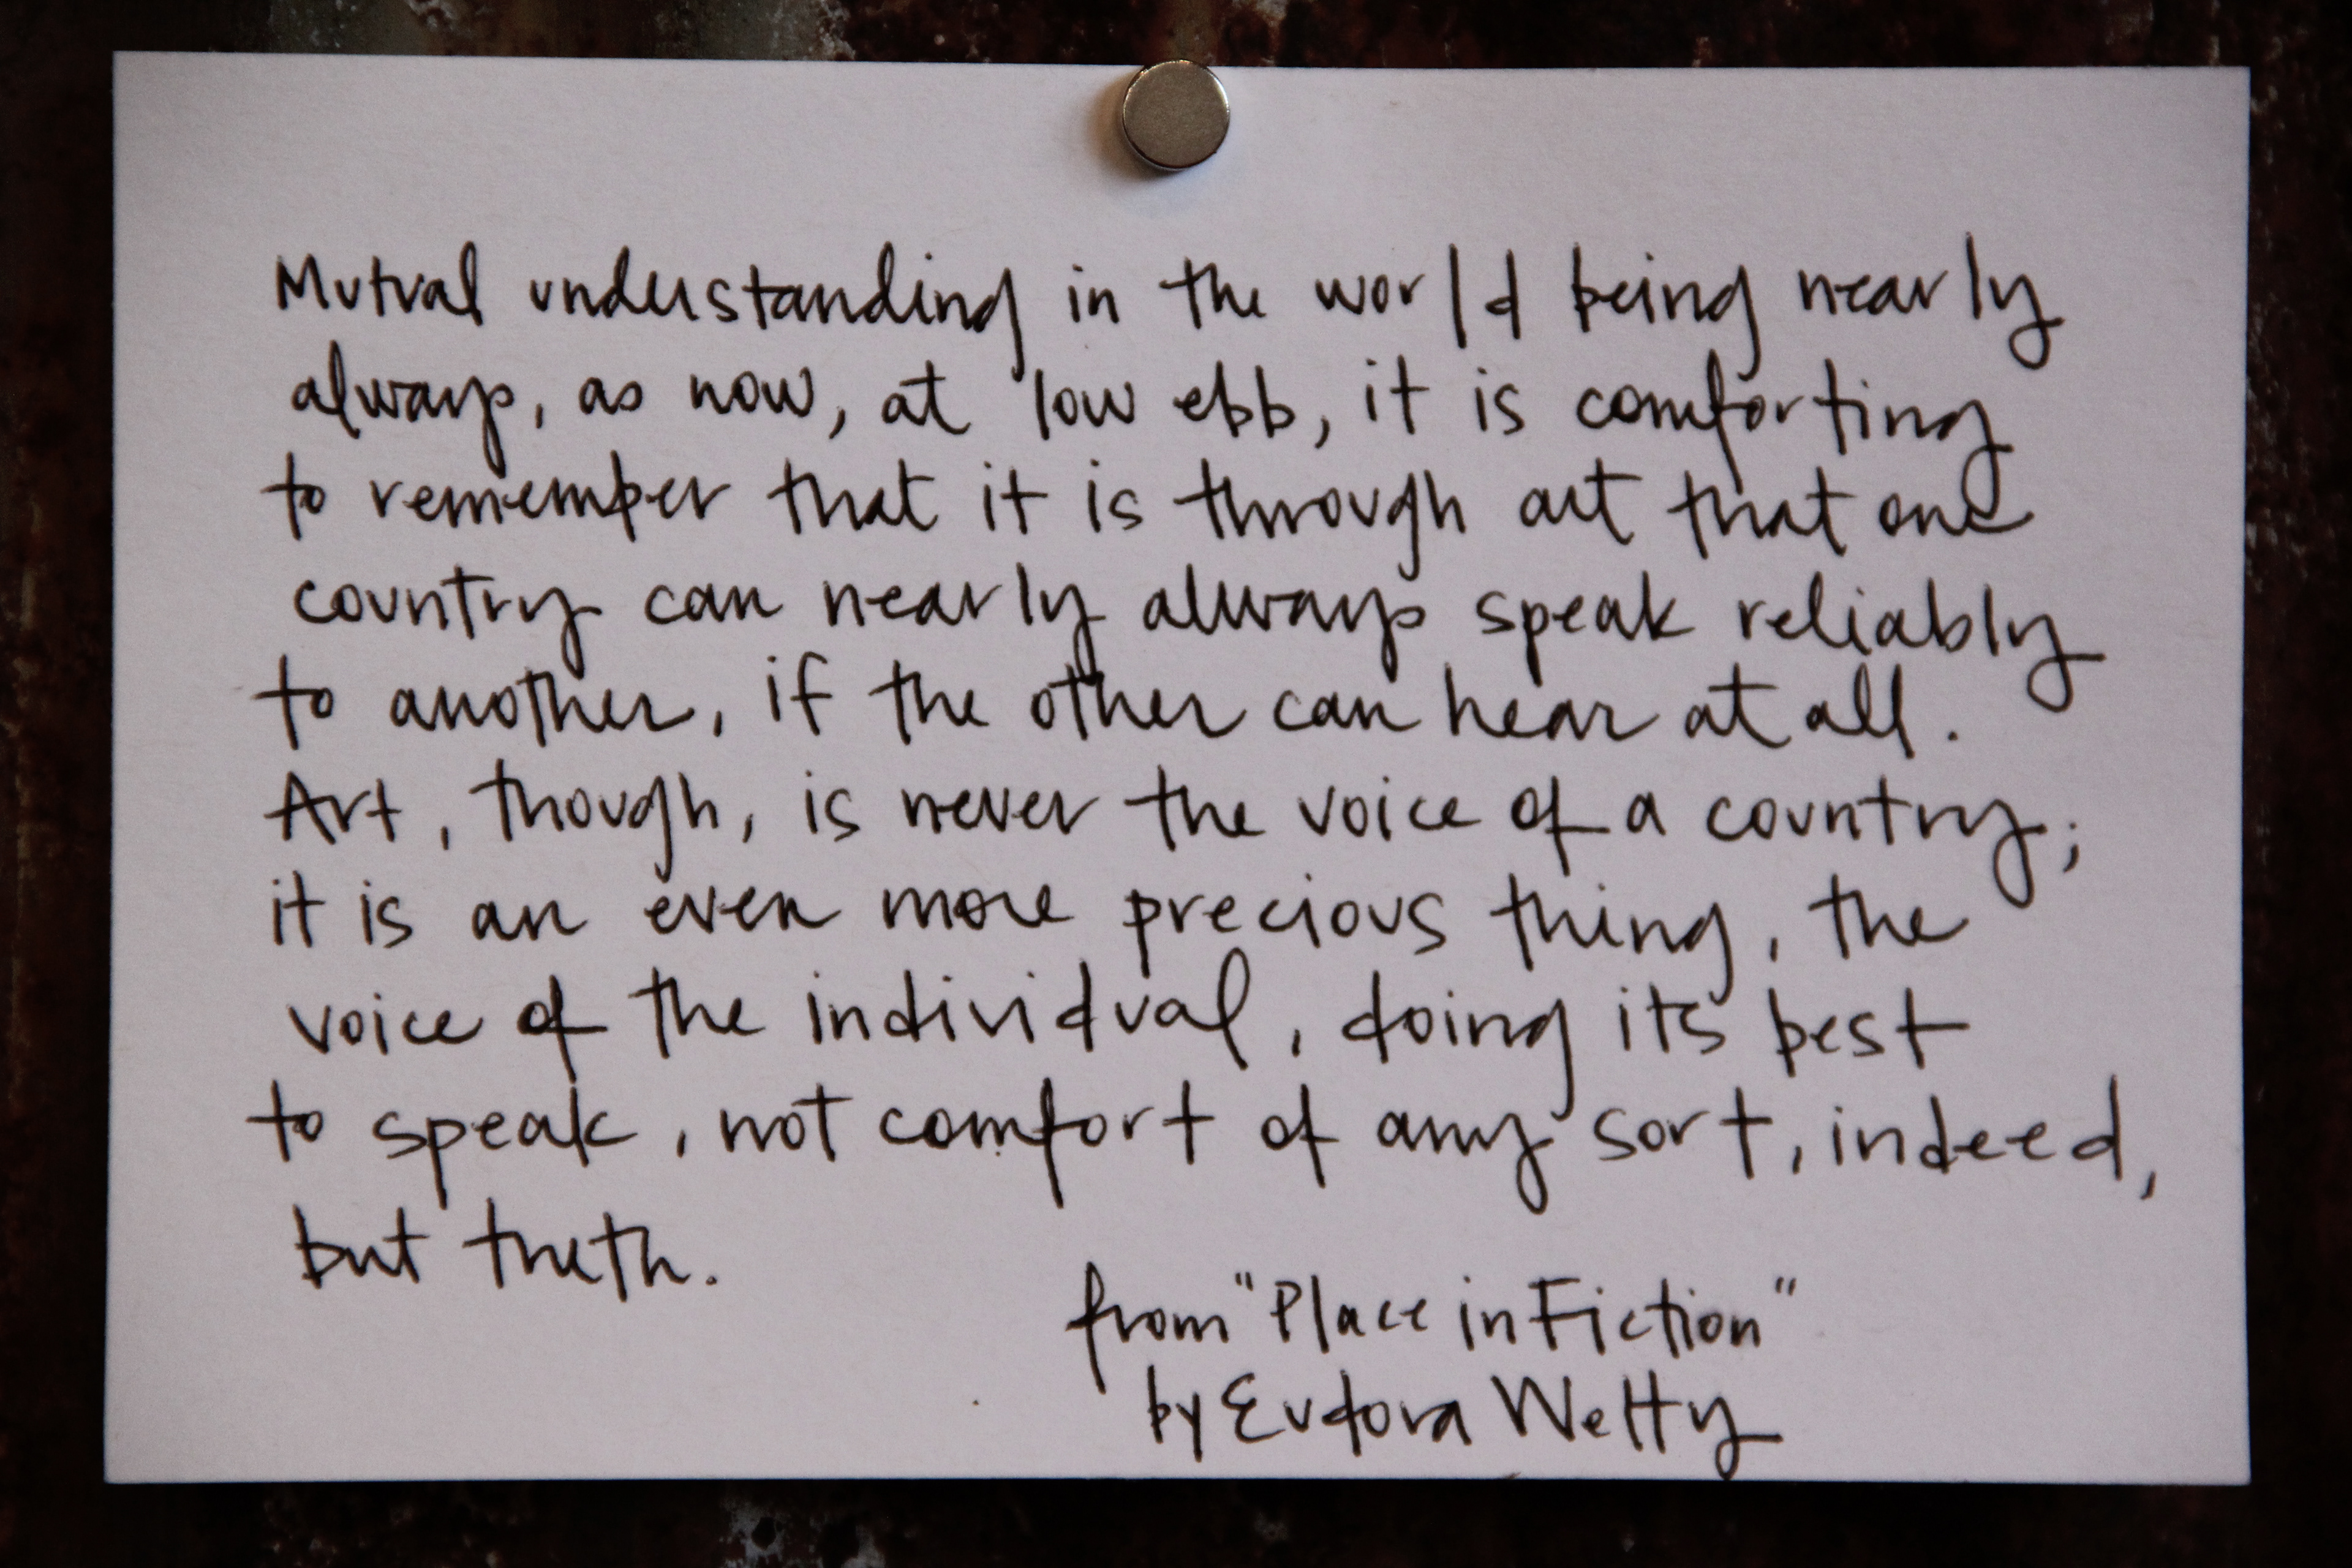 Mutual understanding in the world being nearly
always, as now, at low ebb, it is comforting
to remember that it is through art that one
country can nearly always speak reliably
to another, if the other can hear at all.
Art, though, is never the voice of a country;
it is an even more precious thing, the
voice of the individual, doing its best
to speak, not comfort of any sort, indeed,
but truth.
from "Place in Fiction"
by Eudora Welty